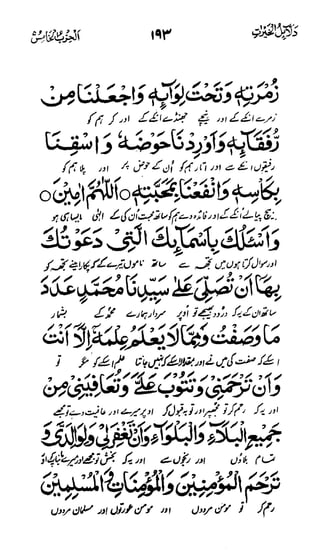 دلائل الخیرات ۱۹۳ الحزب الخامس
زُمْرَتِهٖ وَتَحْتَ لِوَآئِهٖ وَاجْعَلْنَا مِنْ
زمرے انکے کے اور نیچے جھنڈے انکے کے اور کر ہم کو
رُّفَقَآئِهٖ وَاَوْرِدْنَا حَوْضَهٗ وَاسْقِنَا
رفیقوں انکے سے اور اتار ہم کو اُن کے حوض پر اور پلا ہم کو
بِكَاْسِهٖ وَانْفَعْنَا بِمَحَبَّتِهٖ اَللّٰهُمَّ اٰمِيْنَ
بیچ پیالے انکے کے اور فائدہ دے ہم کو ساتھ محبت اُن کی کے الٰہی ایسا ہی ہو
وَاَسْئَلُكَ بِاَسْمَآئِكَ الَّتِيْ دَعَوْتُكَ
اور سوال کرتا ہوں میں تجھ سے ساتھ ناموں تیرے کے کہ پکارا میں نے تجھ کو
بِهَا اَنْ تُصَلِّيَ عَلٰى سَيِّدِنَا مُحَمَّدٍ عَدَدَ
ساتھ ان کے یہ کہ درود بھیجے تو اوپر سردار ہمارے محمد کے بشمار
مَا وَصَفْتَ وَمِمَّا لَا يَعْلَمُ عِلْمَهٗ اِلَّا اَنْتَ
اسکے کہ صفت کی میں نے اور بمقدار اسکے کہ نہیں جانتا علم اسکے کو مگر تو
وَاَنْ تَرْحَمَنِيْ وَتَتُوْبَ عَلَيَّ وَتُعَافِيَنِيْ مِنْ
اور یہ کہ رحم کر تو مجھ پر اور توبہ قبول کر اوپر میرے اور عافیت دے تو مجھے
جَمِيْعِ الْبَلَآءِ وَالْبَلْوَآءِ وَاَنْ تَغْفِرَ لِيْ وَلِوَالِدَيَّ وَ
تمام بلاؤں اور رنجوں سے اور یہ کہ بخشش تو مجھے اور میرے ماں باپ کو اور
تَرْحَمَ الْمُؤْمِنِيْنَ وَالْمُؤْمِنَاتِ وَالْمُسْلِمِيْنَ
رحم کر تو مومن مردوں اور مومن عورتوں اور مسلمان مردوں